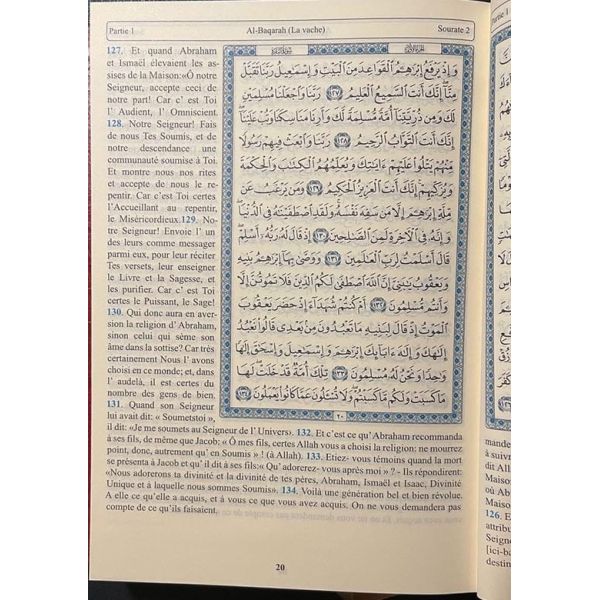 Partie 1 Al-Baqarah (La vache) Sourate 2
127. Et quand Abraham
et Ismaël élevaient les as-
sises de la Maison:«Ô notre
Seigneur, accepte ceci de
notre part! Car c'est Toi
l' Audient, l' Omniscient.
128. Notre Seigneur! Fais
de nous Tes Soumis, et de
notre descendance une
communauté soumise à Toi.
Et montre nous nos rites
et accepte de nous le re-
pentir. Car c'est Toi certes
l'Accueillant au repentir,
le Miséricordieux.129. No-
tre Seigneur! Envoie l' un
des leurs comme messager
parmi eux, pour leur réciter
Tes versets, leur enseigner
le Livre et la Sagesse, et
les purifier. Car c'est Toi
certes le Puissant, le Sage!
130. Qui donc aura en aver-
sion la religion d' Abraham,
sinon celui qui sème son
âme dans la sottise? Car très
certainement Nous l' avons
choisi en ce monde; et, dans
l' audelà, il est certes du
nombre des gens de bien.
131. Quand son Seigneur
lui avait dit: « Soumetstoi »,
وَإِذْ يَرْفَعُ إِبْرَٰهِـۧمُ ٱلْقَوَاعِدَ مِنَ ٱلْبَيْتِ وَإِسْمَـٰعِيلُ رَبَّنَا تَقَبَّلْ
مِنَّآ ۖ إِنَّكَ أَنتَ ٱلسَّمِيعُ ٱلْعَلِيمُ ١٢٧ رَبَّنَا وَٱجْعَلْنَا مُسْلِمَيْنِ
لَكَ وَمِن ذُرِّيَّتِنَآ أُمَّةً مُّسْلِمَةً لَّكَ وَأَرِنَا مَنَاسِكَنَا وَتُبْ عَلَيْنَآ ۖ
إِنَّكَ أَنتَ ٱلتَّوَّابُ ٱلرَّحِيمُ ١٢٨ رَبَّنَا وَٱبْعَثْ فِيهِمْ رَسُولًا
مِّنْهُمْ يَتْلُوا۟ عَلَيْهِمْ ءَايَـٰتِكَ وَيُعَلِّمُهُمُ ٱلْكِتَـٰبَ وَٱلْحِكْمَةَ
وَيُزَكِّيهِمْ ۚ إِنَّكَ أَنتَ ٱلْعَزِيزُ ٱلْحَكِيمُ ١٢٩ وَمَن يَرْغَبُ عَن
مِّلَّةِ إِبْرَٰهِـۧمَ إِلَّا مَن سَفِهَ نَفْسَهُۥ ۚ وَلَقَدِ ٱصْطَفَيْنَـٰهُ فِى ٱلدُّنْيَا ۖ
وَإِنَّهُۥ فِى ٱلْـَٔاخِرَةِ لَمِنَ ٱلصَّـٰلِحِينَ ١٣٠ إِذْ قَالَ لَهُۥ رَبُّهُۥٓ أَسْلِمْ ۖ
قَالَ أَسْلَمْتُ لِرَبِّ ٱلْعَـٰلَمِينَ ١٣١ وَوَصَّىٰ بِهَآ إِبْرَٰهِـۧمُ بَنِيهِ
وَيَعْقُوبُ يَـٰبَنِىَّ إِنَّ ٱللَّهَ ٱصْطَفَىٰ لَكُمُ ٱلدِّينَ فَلَا تَمُوتُنَّ إِلَّا
وَأَنتُم مُّسْلِمُونَ ١٣٢ أَمْ كُنتُمْ شُهَدَآءَ إِذْ حَضَرَ يَعْقُوبَ
ٱلْمَوْتُ إِذْ قَالَ لِبَنِيهِ مَا تَعْبُدُونَ مِنۢ بَعْدِى قَالُوا۟ نَعْبُدُ
إِلَـٰهَكَ وَإِلَـٰهَ ءَابَآئِكَ إِبْرَٰهِـۧمَ وَإِسْمَـٰعِيلَ وَإِسْحَـٰقَ إِلَـٰهًا
وَٰحِدًا وَنَحْنُ لَهُۥ مُسْلِمُونَ ١٣٣ تِلْكَ أُمَّةٌ قَدْ خَلَتْ ۖ لَهَا
مَا كَسَبَتْ وَلَكُم مَّا كَسَبْتُمْ ۖ وَلَا تُسْـَٔلُونَ عَمَّا كَانُوا۟ يَعْمَلُونَ ١٣٤
٢٠
il dit: «Je me soumets au Seigneur de l' Univers». 132. Et c'est ce qu'Abraham recommanda
à ses fils, de même que Jacob: « Ô mes fils, certes Allah vous a choisi la religion: ne mourrez
point, donc, autrement qu' en Soumis » ! (à Allah). 133. Etiez- vous témoins quand la mort
se présenta à Jacob et qu' il dit à ses fils:« Qu' adorerez- vous après moi » ? - Ils répondirent:
«Nous adorerons ta divinité et la divinité de tes pères, Abraham, Ismaël et Isaac, Divinité
Unique et à laquelle nous sommes Soumis». 134. Voilà une génération bel et bien révolue.
A elle ce qu'elle a acquis, et à vous ce que vous avez acquis. On ne vous demandera pas
compte de ce qu'ils faisaient.
20
Partie 1
mande
à suivr
dit Allah
Maison
où Ab
Maison
126. E
attribu
Seigne
[ici-ba
destin